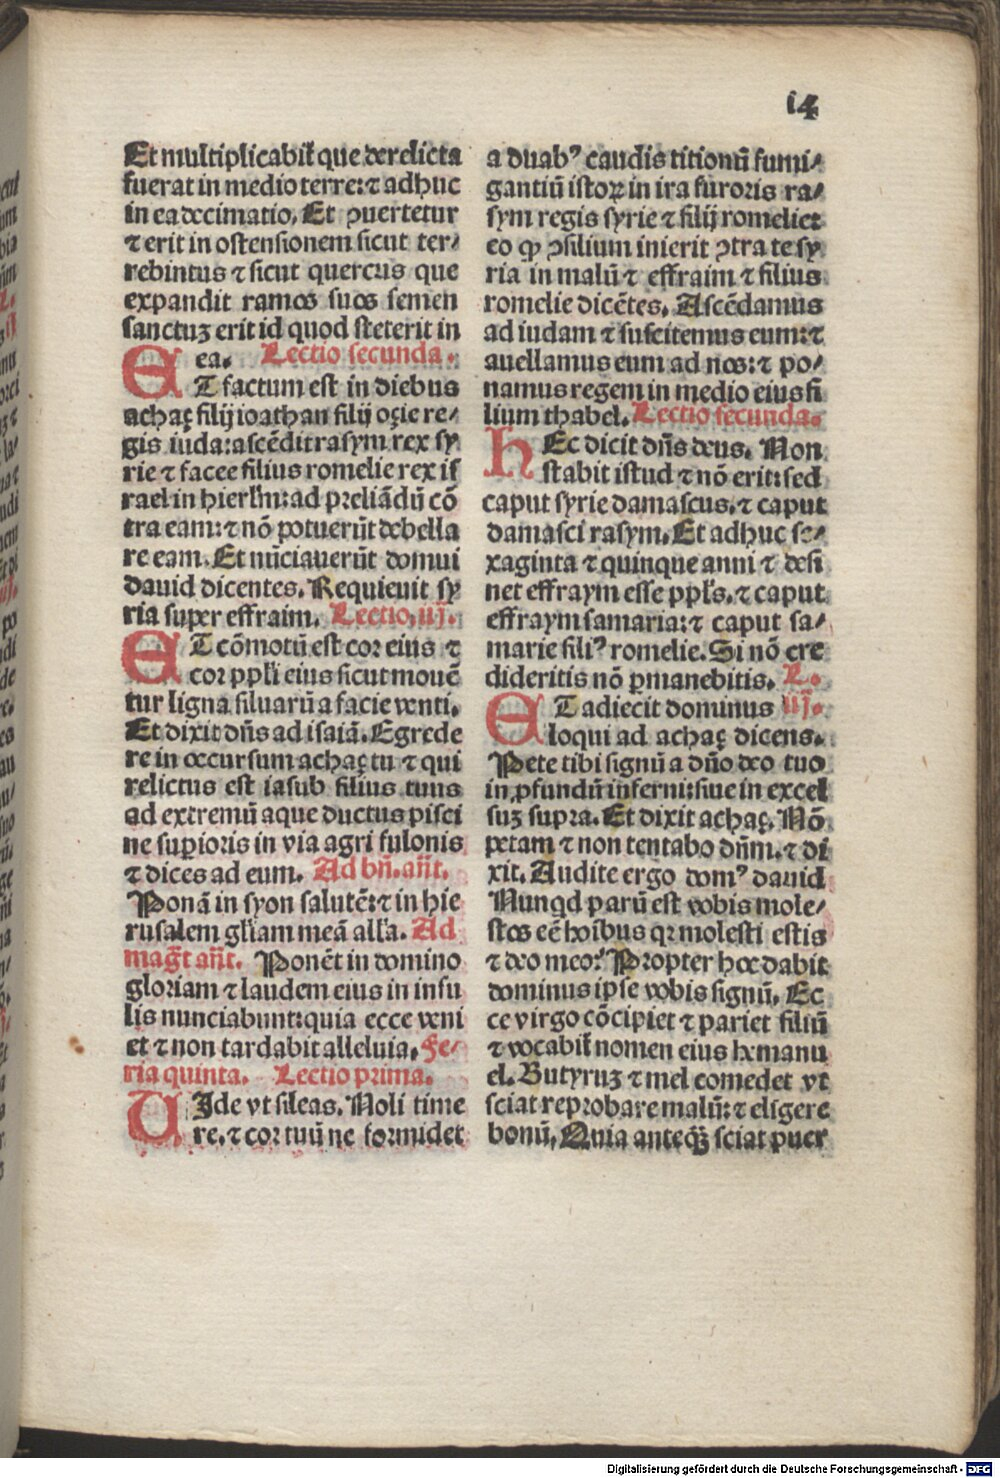 i4
Et multiplicabit̃ que derelicta
fuerat in medio terre: ⁊ adhuc
in ea decimatio. Et ꝯuertetur
⁊ erit in ostensionem sicut ter⸗
rebintus ⁊ sicut quercus que
expandit ramos suos semen
sanctuꝫ erit id quod steterit in
ea. Lectio secunda.
ET factum est in diebus
achaꝫ filij ioathan filij oꝫie re⸗
gis iuda: ascẽdit rasym rex sy
rie ⁊ facee filius romelie rex is
rael in hierl̃m: ad preliãdũ cõ
tra eam: ⁊ nõ potuerũt debella
re eam. Et nũciauerũt domui
dauid dicentes. Requieuit sy
ria super effraim. Lectio. iij.
ET cõmotũ est cor eius ⁊
cor ppl̃i eius sicut mouẽ
tur ligna siluarũ a facie venti.
Et dixit dñs ad isaiã. Egrede
re in occursum achaꝫ tu ⁊ qui
relictus est iasub filius tuus
ad extremũ aque ductus pisci
ne supioris in via agri fulonis
⁊ dices ad eum. Ad bñ. añt.
Ponã in syon salutẽ: ⁊ in hie
rusalem gl̃iam meã all̃a. Ad
mag̃t añt. Ponẽt in domino
gloriam ⁊ laudem eius in insu
lis nunciabunt: quia ecce veni
et ⁊ non tardabit alleluia. Fe⸗
ria quinta. Lectio prima.
UIde vt sileas. Noli time
re. ⁊ cor tuũ ne formidet
a duabꝰ caudis titionũ fumi⸗
gantiũ istoꝝ in ira furoris ra⸗
sym regis syrie ⁊ filij romelie:
eo ꝙ ꝯsilium inierit ꝯtra te sy
ria in malũ ⁊ effraim ⁊ filius
romelie dicẽtes. Ascẽdamus
ad iudam ⁊ suscitemus eum: ⁊
auellamus eum ad nos: ⁊ po⸗
namus regem in medio eius fi
lium thabel. Lectio secunda.
HEc dicit dñs deus. Non
stabit istud ⁊ nõ erit: sed
caput syrie damascus. ⁊ caput
damasci rasym. Et adhuc se⸗
xaginta ⁊ quinque anni ⁊ desi
net effraym esse ppl̃s. ⁊ caput
effraym samaria: ⁊ caput sa⸗
marie filiꝰ romelie. Si nõ cre
dideritis nõ ꝑmanebitis. L.
ET adiecit dominus iij.
loqui ad achaꝫ dicens.
Pete tibi signũ a dño deo tuo
in ꝓfundũ inferni: siue in excel
suꝫ supra. Et dixit achaꝫ. Nõ
petam ⁊ non tentabo dñm. ⁊ di
xit. Audite ergo domꝰ dauid
Nunqd parũ est vobis mole⸗
stos eẽ hoĩbus qꝛ molesti estis
⁊ deo meo? Propter hoc dabit
dominus ipse vobis signũ. Ec
ce virgo cõcipiet ⁊ pariet filiũ
⁊ vocabit̃ nomen eius hemanu
el. Butyruꝫ ⁊ mel comedet vt
sciat reprobare malũ: ⁊ eligere
bonũ. Quia anteq̃ꝫ sciat puer
Digitalisierung gefördert durch die Deutsche Forschungsgemeinschaft - DFG